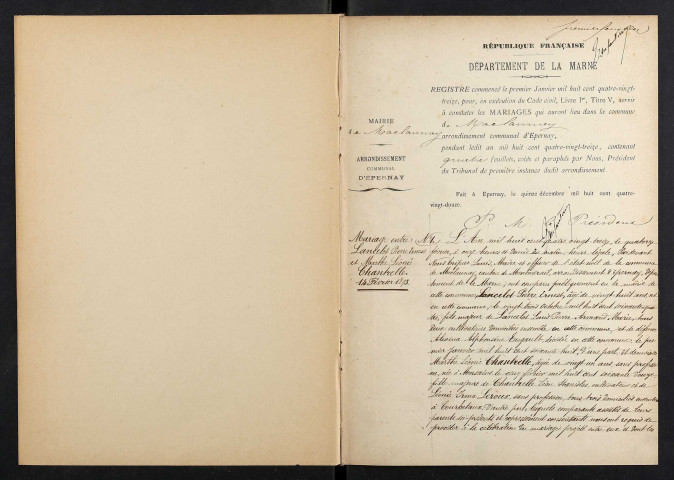 premier feuillet
RÉPUBLIQUE FRANÇAISE
DÉPARTEMENT DE LA MARNE
REGISTRE commencé le premier Janvier mil huit cent quatre-vingt-
treize, pour, en exécution du Code civil, Livre Ier, Titre V, servir
à constater les MARIAGES qui auront lieu dans la commune
de Maclaunay
arrondissement communal d'Epernay,
pendant ledit an mil huit cent quatre-vingt-treize, contenant
quatre feuillets, cotés et paraphés par Nous, Président
du Tribunal de première instance dudit arrondissement
MAIRIE
de Maclaunay
ARRONDISSEMENT
COMMUNAL
D'ÉPERNAY
Fait à Epernay, le quinze décembre mil huit cent quatre-
vingt-douze.
Président
Mariage entre
Lancelot Pierre Ernest
et Marthe Léonie
Chantrelle
14 Février 1893
N° 1. L'An mil huit cent quatre vingt treize, le quatorze
février, à onze heures et demie du matin, heure légale, Pardevant
Nous Louis, Maire et officier de l'état civil de la commune
de Maclaunay, canton de Montmirail, arrondissement d'Épernay, dépar-
tement de la Marne, ont comparu publiquement en la mairie de
cette commune Lancelot Pierre Ernest, âgé de vingt huit ans, né
en cette commune, le vingt trois octobre mil huit cent soixante quatre
fils majeur de Lancelot Louis Pierre Armand Marie,
cultivateurs domiciliés ensemble en cette commune, et de défunte
Alexina Alphonsine décédée en cette commune le pre-
mier janvier mil huit cent soixante huit, D'une part, et demoiselle
Marthe Léonie Chantrelle, âgée de vingt un ans sans profession
née à le cinq février mil huit cent soixante douze
fille majeure de Chantrelle Léon Stanislas, cultivateur et de
Léonie Irma Leroux, sans profession, tous trois domiciliés ensemble
à Courbetaux, D'autre part, lesquels comparants assistés de leurs
parents ci-présents et expressément consentants nous ont requis de
procéder à la célébration du mariage projeté entre eux et dont les